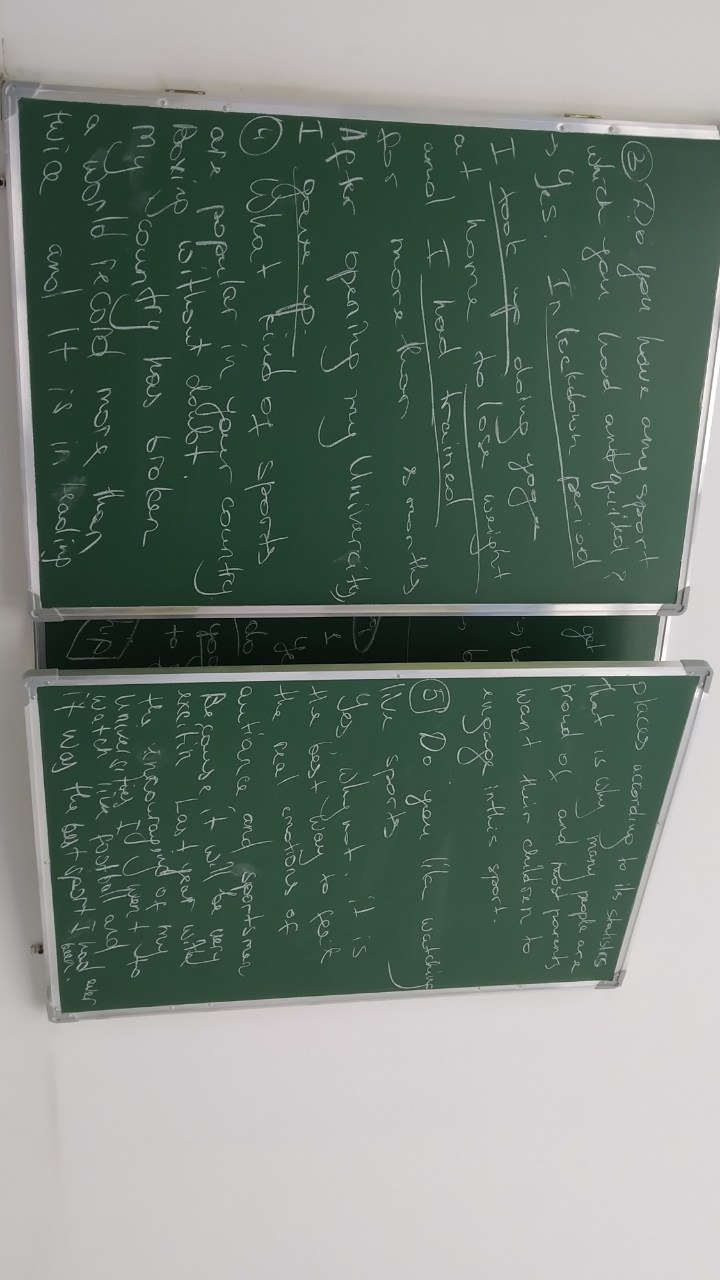 ③ Do you have any sport
which you had and quited?
→ Yes. In lockdown period
I took up doing yoga
at home to lose weight
and I had trained
for more than 8 months
After opening my Univercity,
I gave up.
④ What kind of sports
are popular in your country
Boxing without doubt.
My country has broken
a world record more than
twice and It is in leading
get
do
yog
to
places according to its statistics
That is why many people are
proud of and most parents
want their children to
engage in this sport.
⑤ Do you like watching
live sports
Yes, why not. it is
the best way to feel
the real emotions of
autiance and sportsmen
Because it will be very
excitin Last year with
the encouraging of my
Universities I went to
watch live football and
it was the best sport I had ever
been.